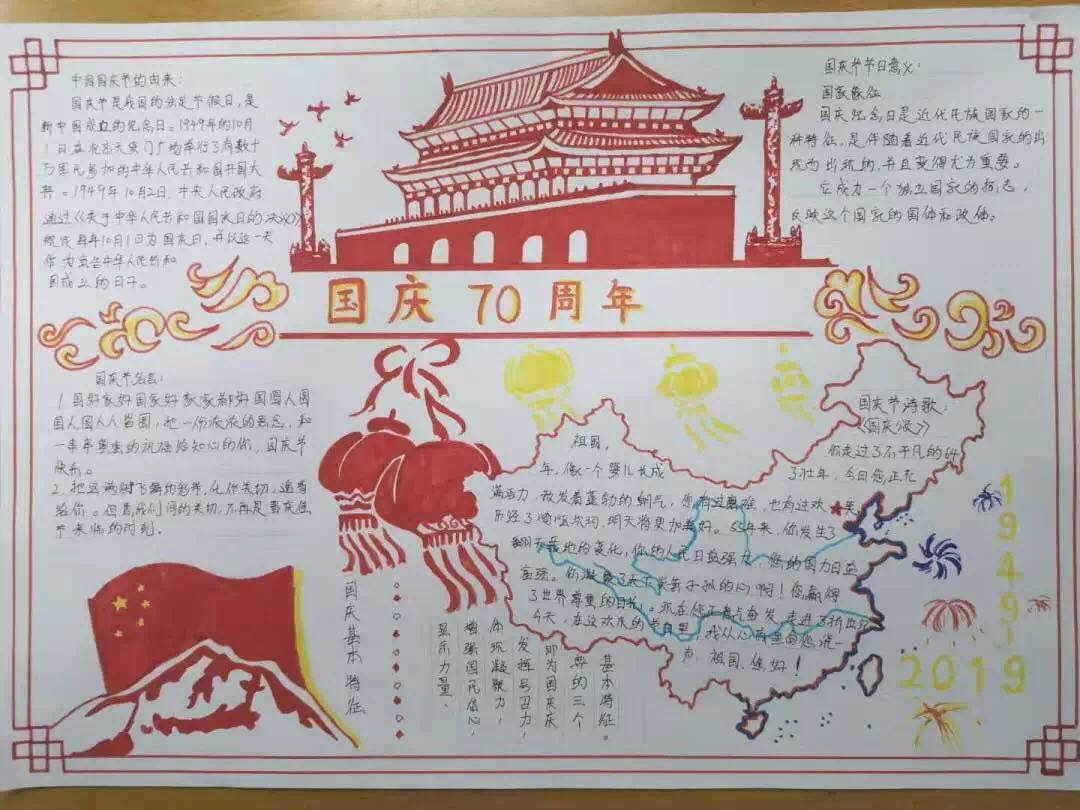 中国国庆节的由来：
国庆节是我国的法定节假日，是
新中国成立的纪念日。1949年的10月
1日在北京天安门广场举行了有数十
万军民参加的中华人民共和国开国大
典。1949年10月2日，中央人民政府
通过《关于中华人民共和国国庆日的决议》
规定每年10月1日为国庆日，并以这一天
作为宣告中华人民共和
国成立的日子。
国庆节节日意义：
国家象征
国庆纪念日是近代民族国家的一
种特征，是伴随着近代民族国家的出
现而出现的，并且变得尤为重要。
它成为一个独立国家的标志，
反映这个国家的国体和政体。
国庆70周年
国庆节名言：
1.国好家好国家好家家都好国圆人圆
国人圆人人皆圆，把一份浓浓的思念，和
一串串重重的祝福给知心的你，国庆节
快乐。
2.把这满树飞舞的彩,化作关切,遥寄
给你。但愿我们间的关切,不再是喜庆佳
节来临的时刻。
国庆节诗歌：
《国庆颂》
祖国，
你走过了不平凡的54
年，像一个婴儿长成
了壮年，今日您正充
满活力，散发着蓬勃的朝气，您有过艰难，也有过欢乐
历经了崎岖坎坷，明天将更加美好。55年来，你发生了
翻天覆地的变化，你的人民日益强大，您的国力日益
富强。你凝聚了天下炎黄子孙的心啊！您赢得
了世界尊重的目光。现在你正意气奋发，走进了新世纪
今天，在这欢庆的节日里，我从心里面向您说一
声，祖国，您好！
国庆基本特征
显示力量、
增强国民信心，
体现凝聚力，
发挥号召力，
即为国庆庆
典的三个
基本特征。
1949-
2019